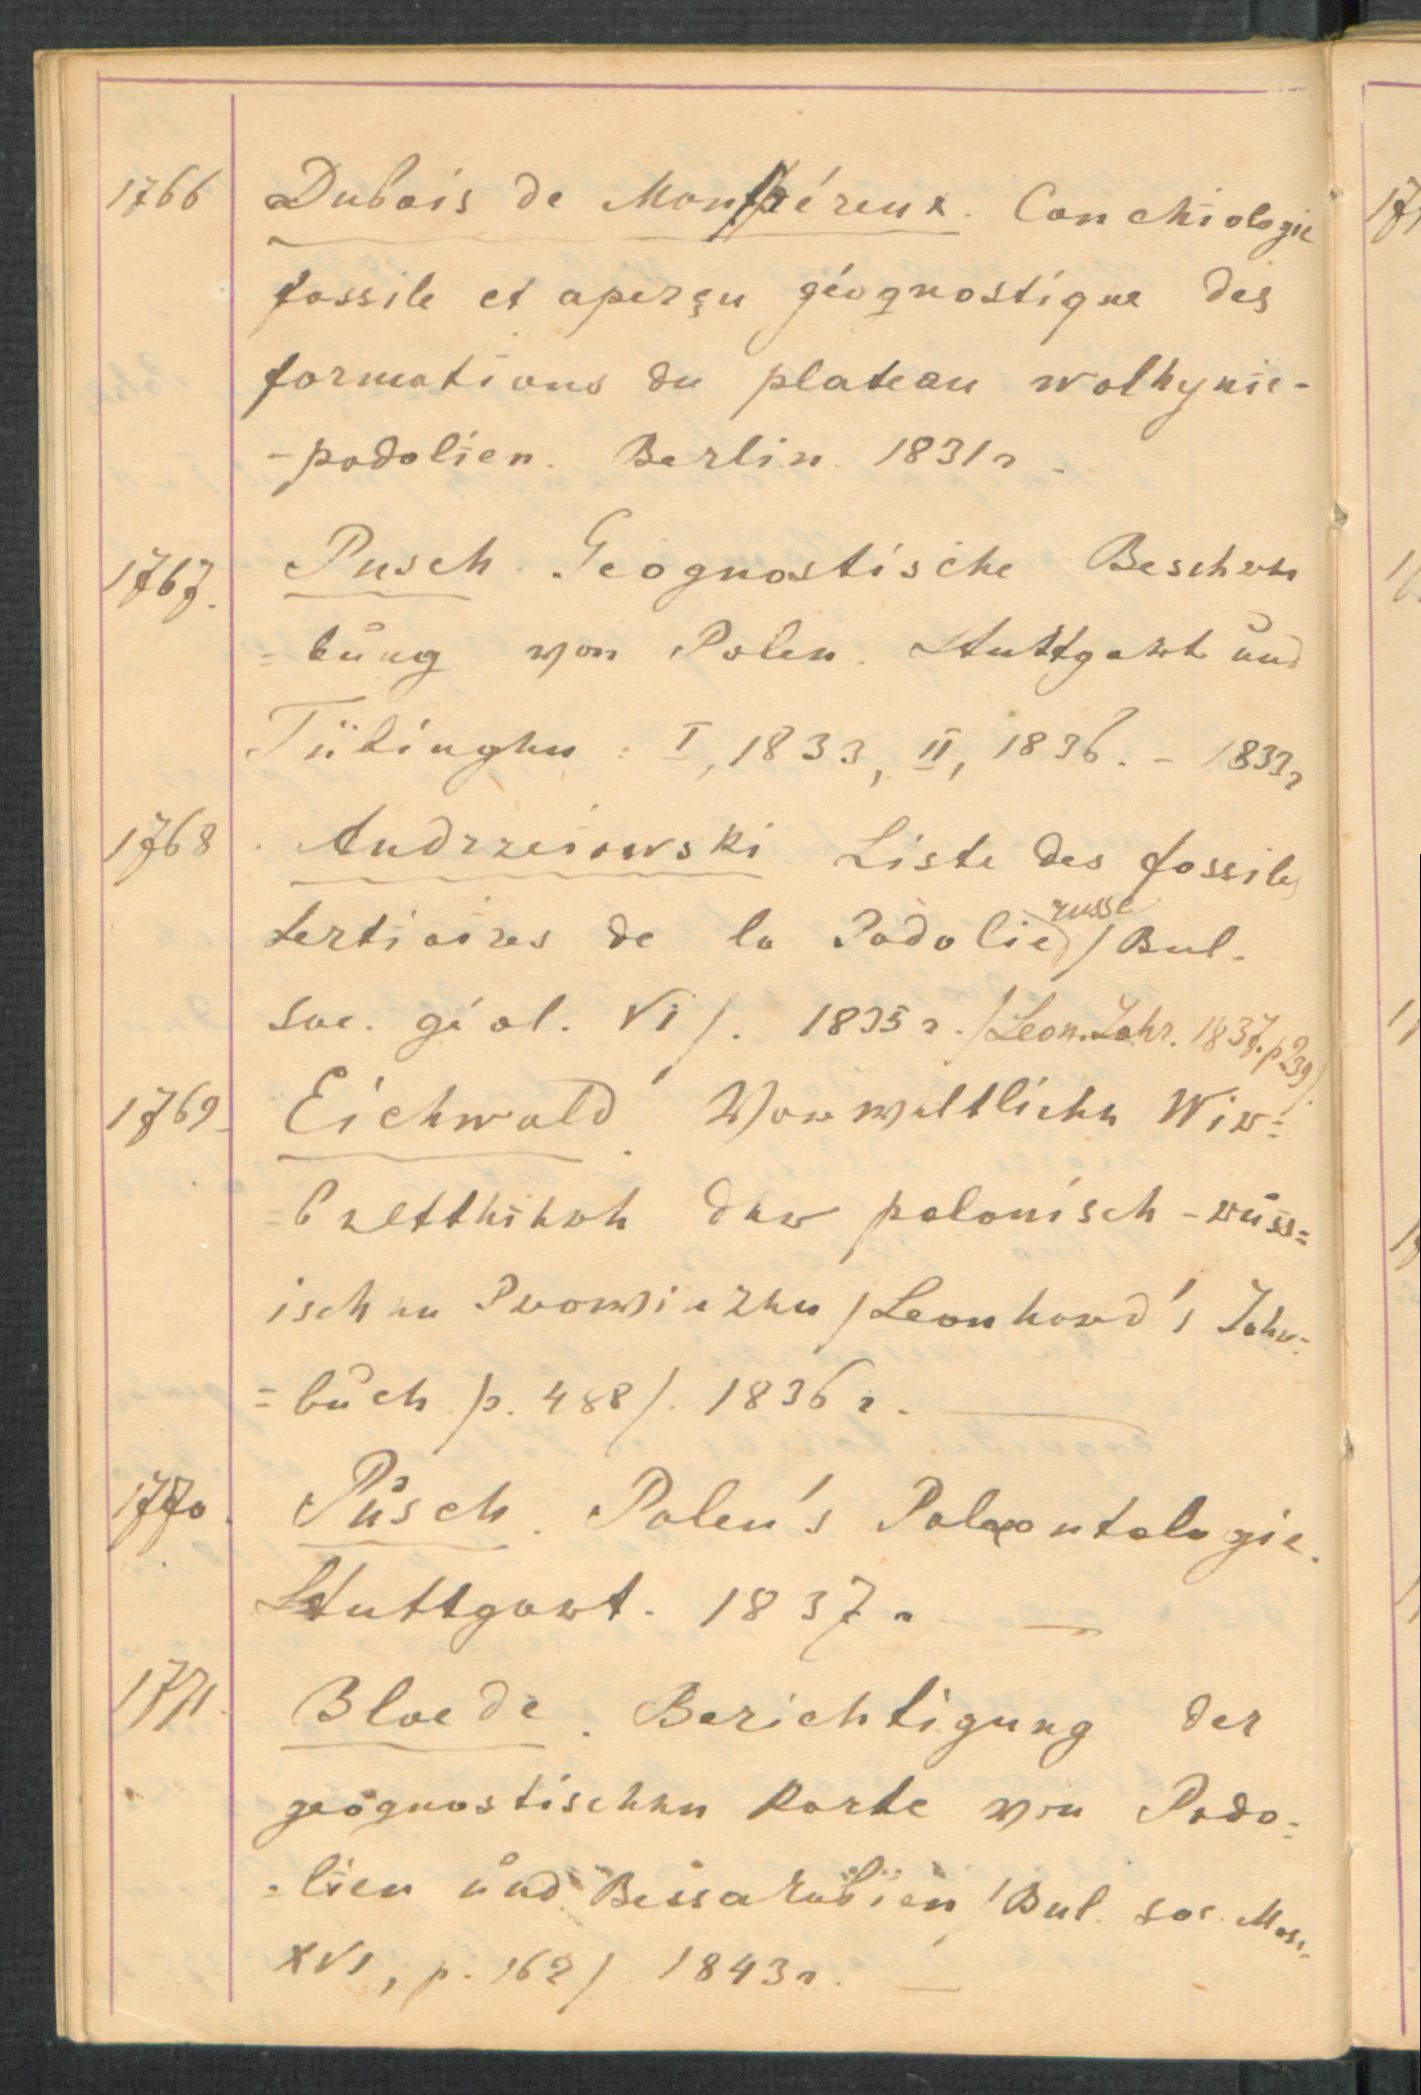 1766 Dubois de Monpéreux. Conchiologie
fossile et aperçu géognostique des
formations du plateau wolhynie-
-podolien. Berlin. 1831 г.
1767. Pusch. Geognostische Beschrei
=bung von Polen. Stuttgart und
Tübingen. I, 1833, II, 1836. - 1833 г
1768. Andrzeiowski Liste des fossiles
tertiaires de la Podolie russe /Bul.
soc. géol. VI/. 1835 г. /Leon. Jahr. 1837. p 239/.
1769. Eichwald. Vorweltliche Wir=
=belthiere der polonisch-russ=
ischen Provinzen /Leonhard's Jahr=
=buch p. 488/. 1836 г.
1770. Pusch. Polen's Paleontologie.
Stuttgart. 1837 г
1771. Bloede. Berichtigung der
geognostischen Karte von Podo=
=lien und Bessarabien /Bul. soc. Mosc.
XVI, p. 162/ 1843 г.